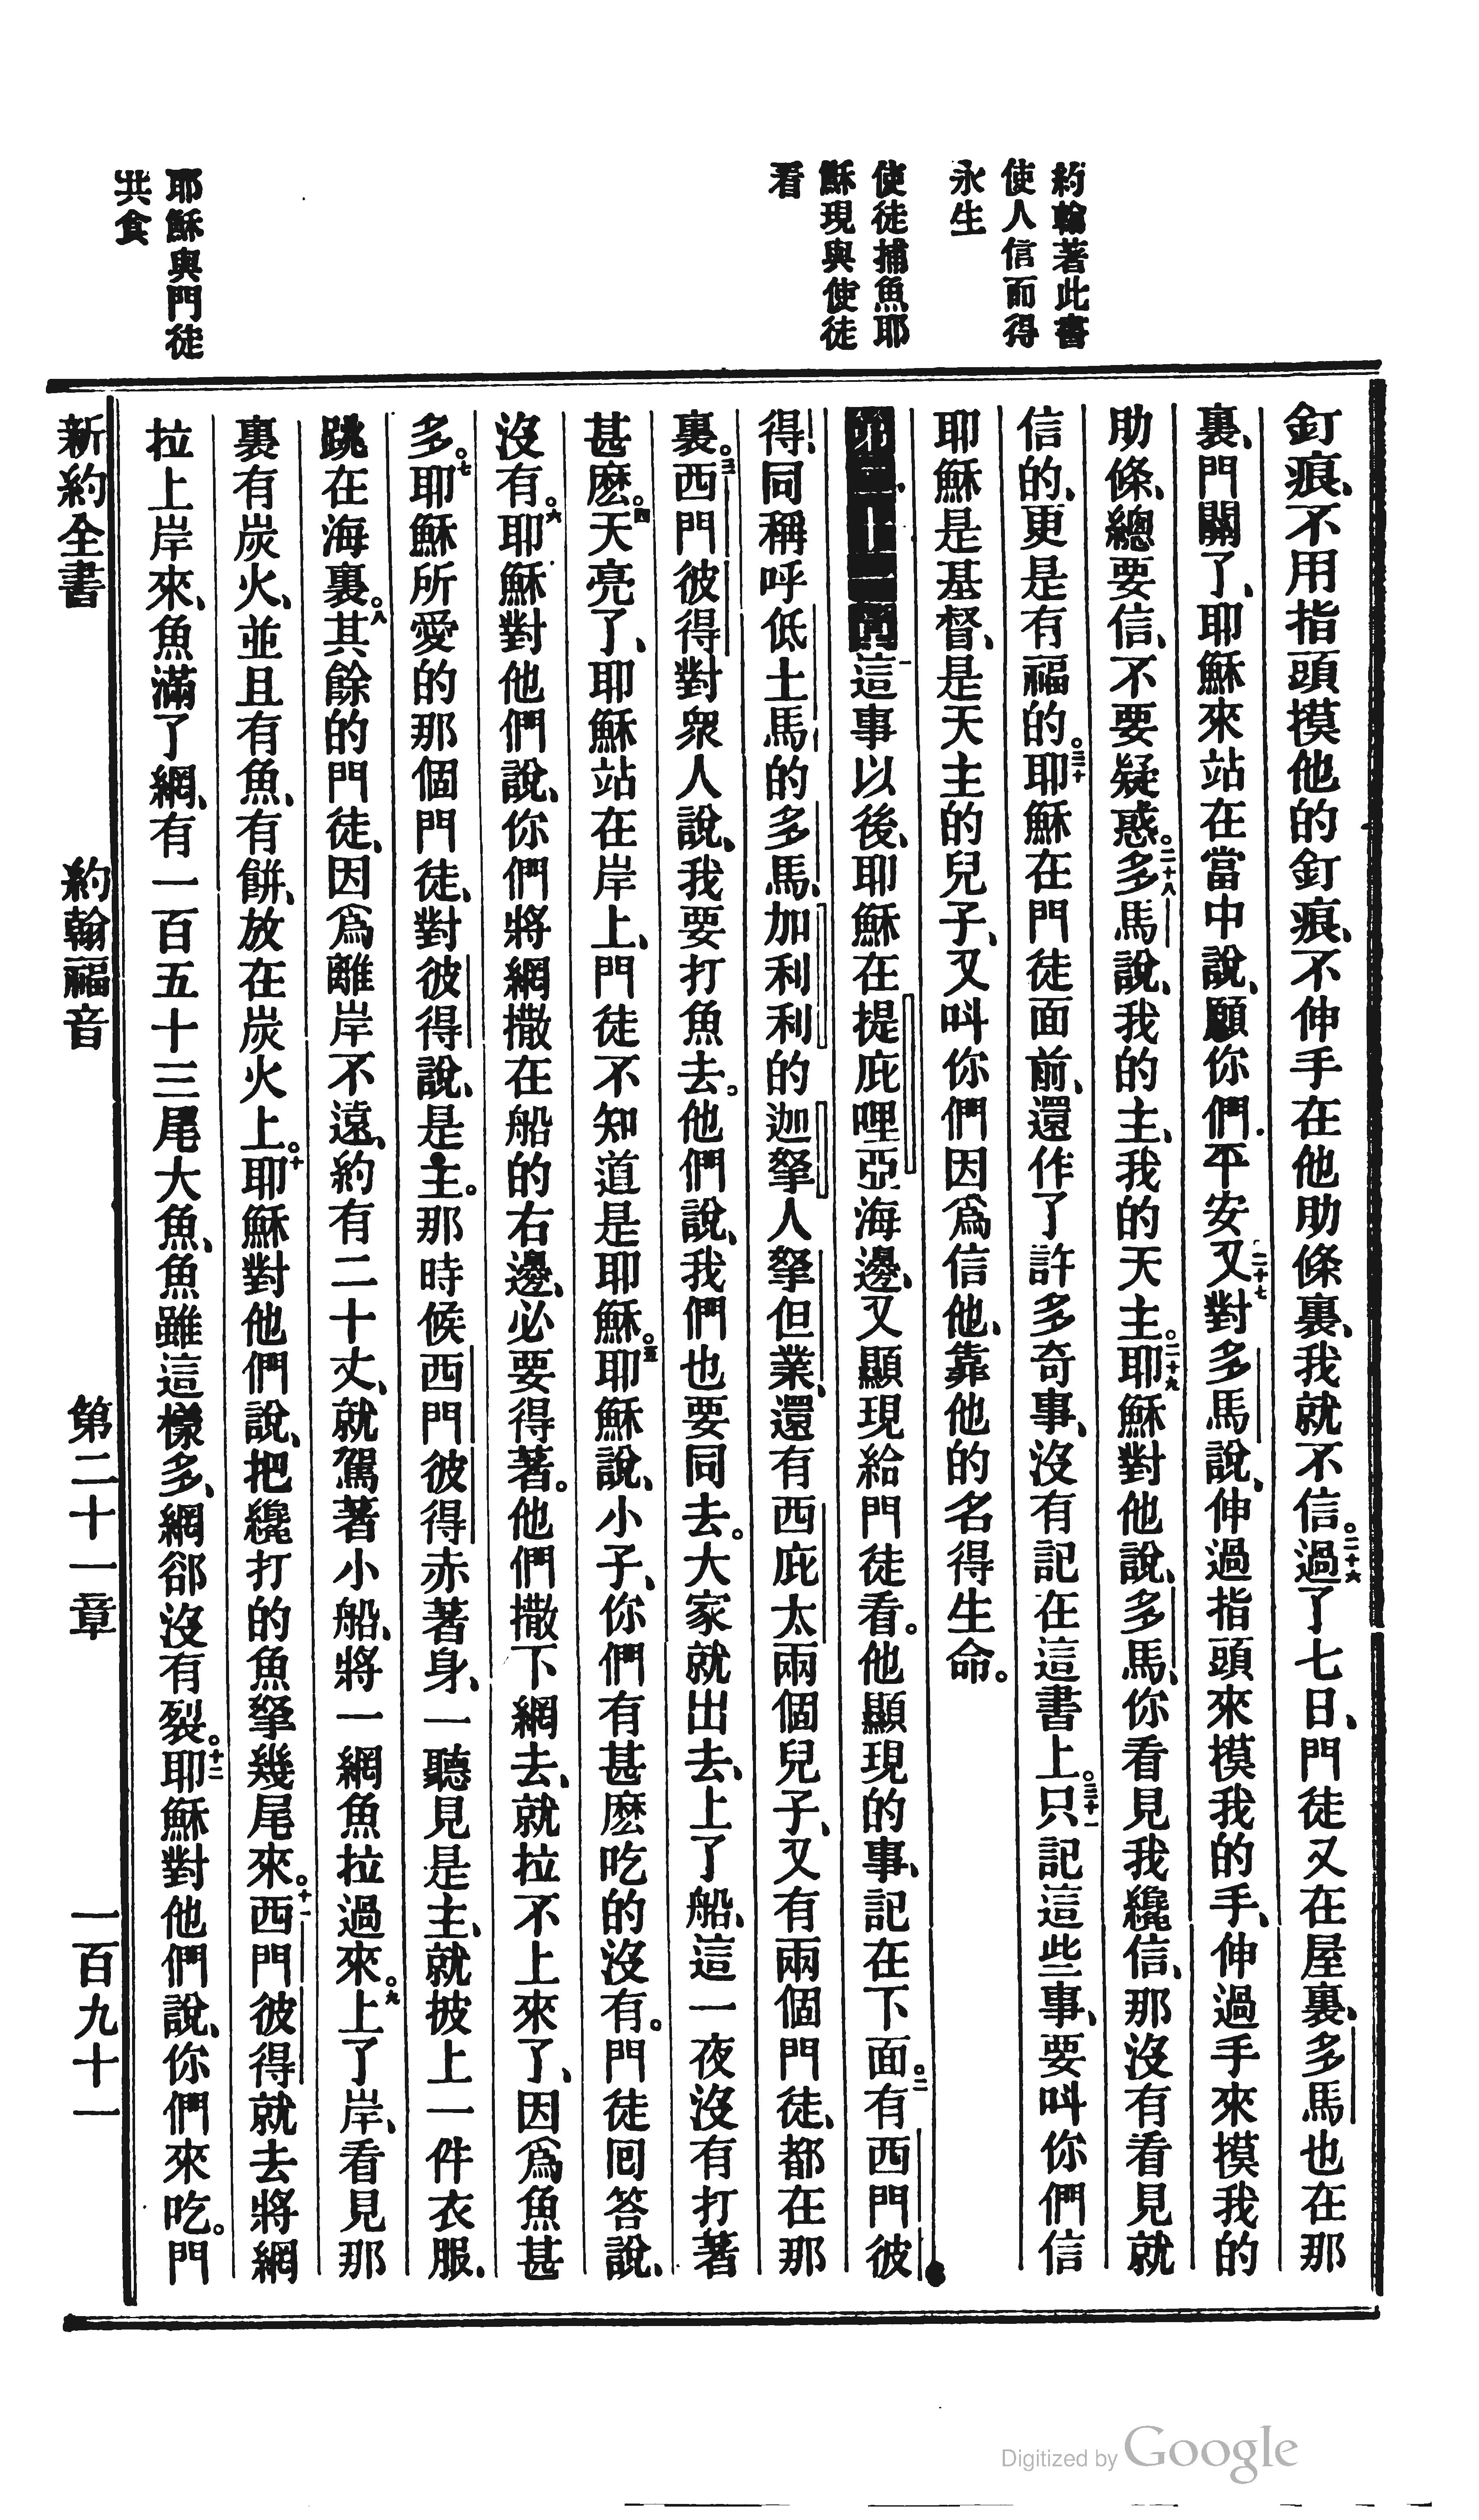 約翰著此書
使人信而得
永生
使徒捕魚耶
穌現與使徒
看
耶穌與門徒
共食
釘痕、不用指頭摸他的釘痕、不伸手在他肋條裏、我就不信。二十六過了七日、門徒又在屋裏、多馬也在那
裏、門關了、耶穌來站在當中說、願你們平安、二十七又對多馬說、伸過指頭來摸我的手、伸過手來摸我的
肋條、總要信、不要疑惑。二十八多馬說、我的主、我的天主。二十九耶穌對他說、多馬、你看見我纔信、那沒有看見就
信的、更是有福的。三十耶穌在門徒面前、還作了許多奇事、沒有記在這書上。三十一只記這些事、要叫你們信
耶穌是基督、是天主的兒子、又叫你們因爲信他、靠他的名得生命。
一這事以後、耶穌在提庇哩亞海邊、又顯現給門徒看。他顯現的事、記在下面。二有西門彼
得、同稱呼低土馬的多馬、加利利的迦拏人拏但業、還有西庇太兩個兒子、又有兩個門徒、都在那
裏。三西門彼得對衆人說、我要打魚去。他們說、我們也要同去。大家就出去、上了船、這一夜沒有打著
甚麽。四天亮了、耶穌站在岸上、門徒不知道是耶穌。五耶穌說、小子、你們有甚麽吃的沒有。門徒囘答說、
沒有。六耶穌對他們說、你們將網撒在船的右邊、必要得著。他們撒下網去、就拉不上來了、因爲魚甚
多。七耶穌所愛的那個門徒、對彼得說、是主。那時候西門彼得赤著身、一聽見是主、就披上一件衣服、
跳在海裏。八其餘的門徒、因爲離岸不遠、約有二十丈、就駕著小船、將一網魚拉過來。九上了岸、看見那
裏有炭火、並且有魚、有餅、放在炭火上。十耶穌對他們說、把纔打的魚拏幾尾來。十一西門彼得就去將網
拉上岸來、魚滿了網、有一百五十三尾大魚、魚雖這樣多、網卻沒有裂。十二耶穌對他們說、你們來吃。門
新約全書 約翰福音 第二十一章 一百九十一
Digitized by Google